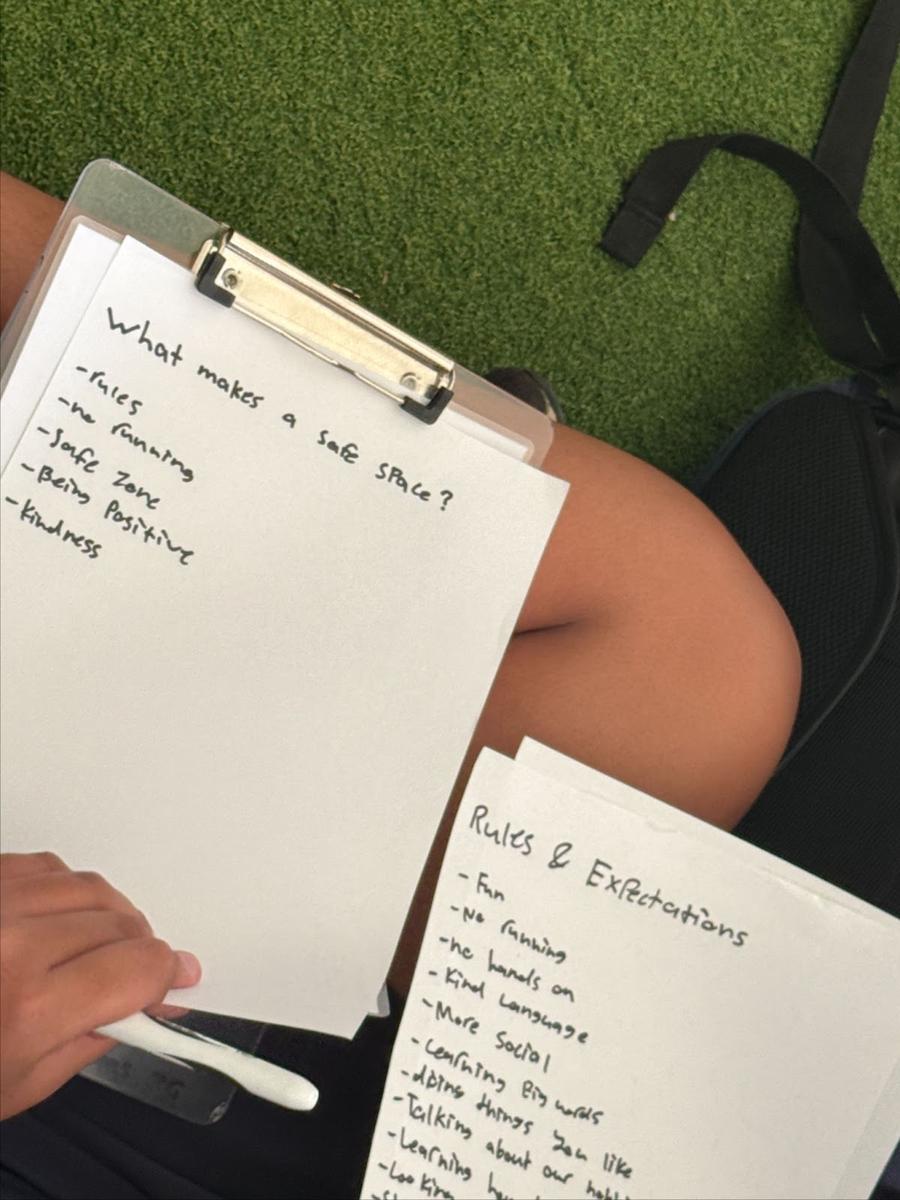 What makes a safe space?
-rules
-no running
-Safe Zone
-Being Positive
-Kindness
Rules & Expectations
-Fun
-No running
-no hands on
-Kind Language
-More Social
-Learning Big words
-doing things you like
-Talking about our
-Learning
-Looking